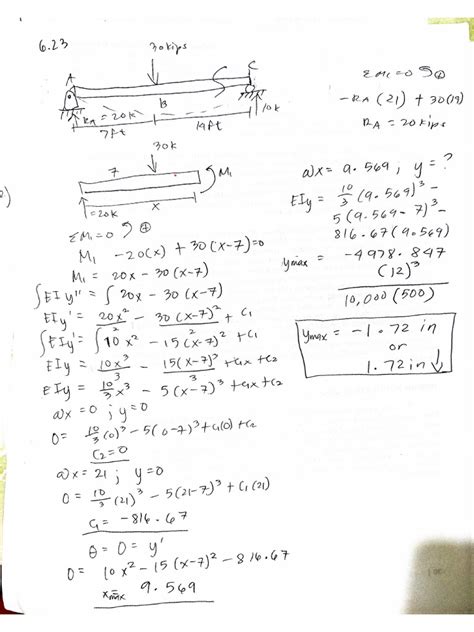 6.23
30kips
A
C
B
RA = 20k
10k
7ft
14ft
30k
7
M1
x
=20k
ΣM1=0
M1 -20(x) + 30(x-7)=0
M1 = 20x - 30(x-7)
∫EIy'' = ∫20x - 30(x-7)
EIy' = 20x²/2 - 30(x-7)²/2 + C1
∫EIy' = ∫10x² - 15(x-7)² + C1
EIy = 10x³/3 - 15(x-7)³/3 + C1x + C2
EIy = 10/3 x³ - 5(x-7)³ + C1x + C2
@x=0 ; y=0
0= 10/3 (0)³ - 5(0-7)³ + C1(0) + C2
C2=0
@x=21 ; y=0
0 = 10/3 (21)³ - 5(21-7)³ + C1(21)
C1 = -816.67
θ = 0 = y'
0= 10x² - 15(x-7)² - 816.67
xmax = 9.569
ΣM1=0
-RA(21) + 30(14)
RA = 20kips
@x= 9.569 ; y= ?
EIy = 10/3 (9.569)³ -
5(9.569-7)³ -
816.67(9.569)
ymax = -4978.847
(12)³
10,000(500)
ymax = -1.72 in
or
1.72in ↓